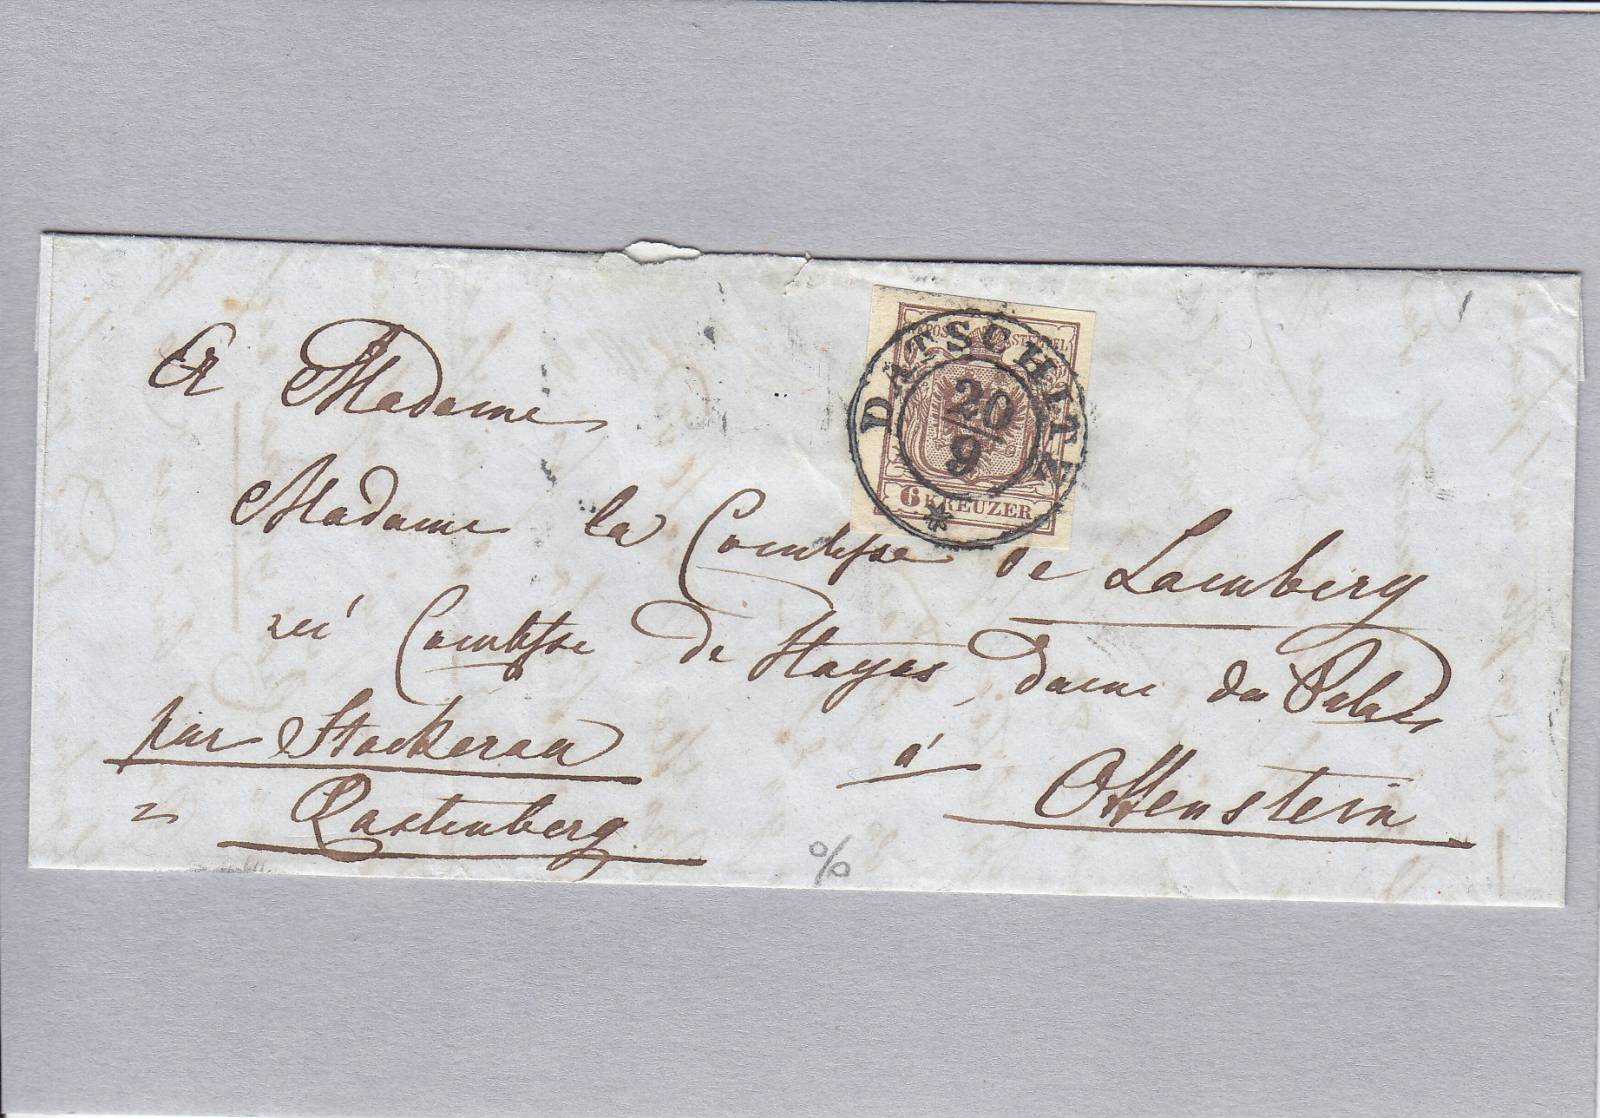 A Madame
Madame la Comtesse de Lamberg
née Comtesse de Hoyos, dame du Palais
par Stockerau
à Ottenstein
Rastenberg
KK POST-STEMPEL
6 KREUZER
DATSCHITZ
20
9
%